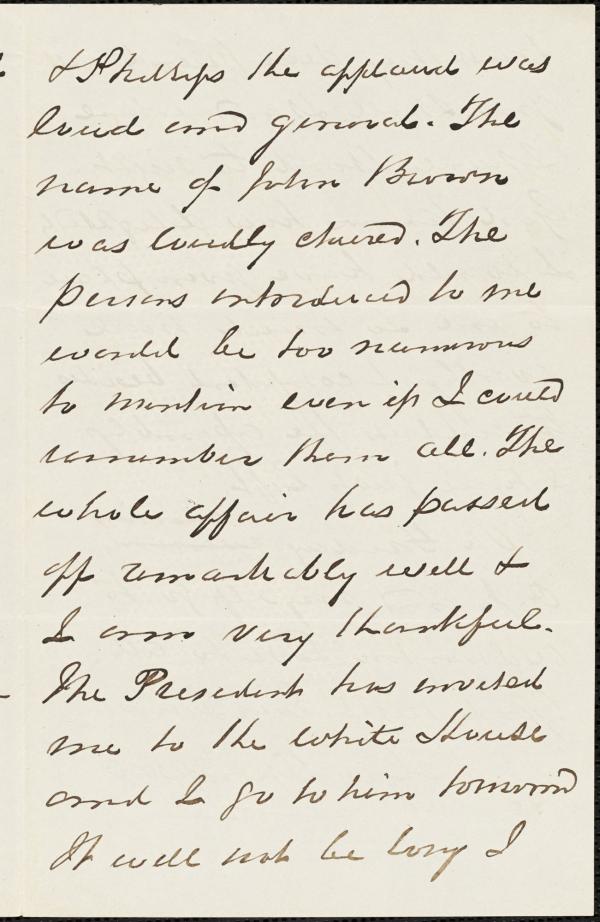 & Phillips the applaud was
loud and general. The
name of John Brown
was loudly cheered. The
persons introduced to me
would be too numerous
to mention even if I could
remember them all. The
whole affair has passed
off remarkably well &
I am very thankful.
The President has invited
me to the White House
and I go to him tomorrow
It will not be long I